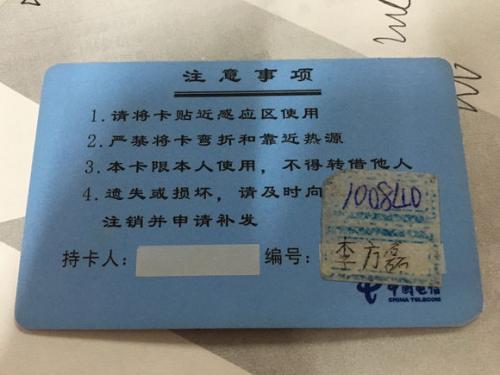 注意事项
1.请将卡贴近感应区使用
2.严禁将卡弯折和靠近热源
3.本卡限本人使用，不得转借他人
4.遗失或损坏，请及时向
注销并申请补发
1008410
持卡人：
编号：
李方磊
中国电信
CHINA TELECOM